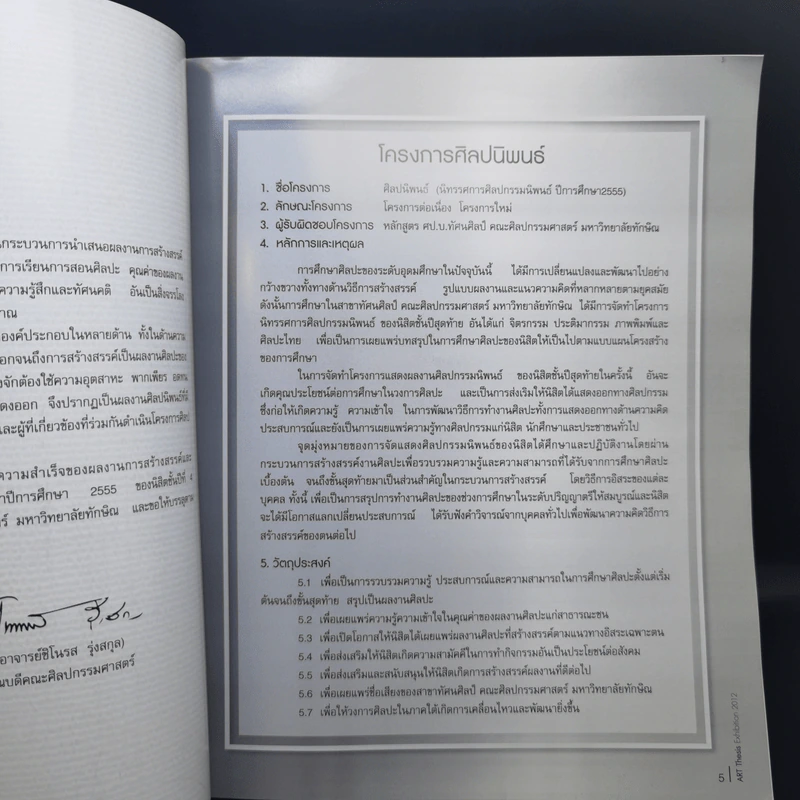 นกระบวนการนำเสนอผลงานการสร้างสรรค์
การเรียนการสอนศิลปะ คุณค่าของผลงาน
ความรู้สึกและทัศนคติ อันเป็นสิ่งจรรโลง
าณ
องค์ประกอบในหลายด้าน ทั้งในด้านความ
อกจนถึงการสร้างสรรค์เป็นผลงานศิลปะของ
งจักต้องใช้ความอุตสาหะ พากเพียร อดทน
ดงออก จึงปรากฏเป็นผลงานศิลปนิพนธ์ที่ดี
และผู้ที่เกี่ยวข้องที่ร่วมกันดำเนินโครงการศิลป
ความสำเร็จของผลงานการสร้างสรรค์และ
าปีการศึกษา 2555 ของนิสิตชั้นปีที่ 4
ร์ มหาวิทยาลัยทักษิณ และขอให้บรรลุตาม
อาจารย์ชิโนรส รุ่งสกุล)
ณบดีคณะศิลปกรรมศาสตร์
โครงการศิลปนิพนธ์
1. ชื่อโครงการ ศิลปนิพนธ์ (นิทรรศการศิลปกรรมนิพนธ์ ปีการศึกษา2555)
2. ลักษณะโครงการ โครงการต่อเนื่อง โครงการใหม่
3. ผู้รับผิดชอบโครงการ หลักสูตร ศป.บ.ทัศนศิลป์ คณะศิลปกรรมศาสตร์ มหาวิทยาลัยทักษิณ
4. หลักการและเหตุผล
การศึกษาศิลปะของระดับอุดมศึกษาในปัจจุบันนี้ ได้มีการเปลี่ยนแปลงและพัฒนาไปอย่าง
กว้างขวางทั้งทางด้านวิธีการสร้างสรรค์ รูปแบบผลงานและแนวความคิดที่หลากหลายตามยุคสมัย
ดังนั้นการศึกษาในสาขาทัศนศิลป์ คณะศิลปกรรมศาสตร์ มหาวิทยาลัยทักษิณ ได้มีการจัดทำโครงการ
นิทรรศการศิลปกรรมนิพนธ์ ของนิสิตชั้นปีสุดท้าย อันได้แก่ จิตรกรรม ประติมากรรม ภาพพิมพ์และ
ศิลปะไทย เพื่อเป็นการเผยแพร่บทสรุปในการศึกษาศิลปะของนิสิตให้เป็นไปตามแบบแผนโครงสร้าง
ของการศึกษา
ในการจัดทำโครงการแสดงผลงานศิลปกรรมนิพนธ์ ของนิสิตชั้นปีสุดท้ายในครั้งนี้ อันจะ
เกิดคุณประโยชน์ต่อการศึกษาในวงการศิลปะ และเป็นการส่งเริมให้นิสิตได้แสดงออกทางศิลปกรรม
ซึ่งก่อให้เกิดความรู้ ความเข้าใจ ในการพัฒนาวิธีการทำงานศิลปะทั้งการแสดงออกทางด้านความคิด
ประสบการณ์และยังเป็นการเผยแพร่ความรู้ทางศิลปกรรมแก่นิสิต นักศึกษาและประชาชนทั่วไป
จุดมุ่งหมายของการจัดแสดงศิลปกรรมนิพนธ์ของนิสิตได้ศึกษาและปฏิบัติงานโดยผ่าน
กระบวนการสร้างสรรค์งานศิลปะเพื่อรวบรวมความรู้และความสามารถที่ได้รับจากการศึกษาศิลปะ
เบื้องต้น จนถึงขั้นสุดท้ายมาเป็นส่วนสำคัญในกระบวนการสร้างสรรค์ โดยวิธีการอิสระของแต่ละ
บุคคล ทั้งนี้ เพื่อเป็นการสรุปการทำงานศิลปะของช่วงการศึกษาในระดับปริญญาตรีให้สมบูรณ์และนิสิต
จะได้มีโอกาสแลกเปลี่ยนประสบการณ์ ได้รับฟังคำวิจารณ์จากบุคคลทั่วไปเพื่อพัฒนาความคิดวิธีการ
สร้างสรรค์ของตนต่อไป
5. วัตถุประสงค์
5.1 เพื่อเป็นการรวบรวมความรู้ ประสบการณ์และความสามารถในการศึกษาศิลปะตั้งแต่เริ่ม
ต้นจนถึงขั้นสุดท้าย สรุปเป็นผลงานศิลปะ
5.2 เพื่อเผยแพร่ความรู้ความเข้าใจในคุณค่าของผลงานศิลปะแก่สาธารณะชน
5.3 เพื่อเปิดโอกาสให้นิสิตได้เผยแพร่ผลงานศิลปะที่สร้างสรรค์ตามแนวทางอิสระเฉพาะตน
5.4 เพื่อส่งเสริมให้นิสิตเกิดความสามัคคีในการทำกิจกรรมอันเป็นประโยชน์ต่อสังคม
5.5 เพื่อส่งเสริมและสนับสนุนให้นิสิตเกิดการสร้างสรรค์ผลงานที่ดีต่อไป
5.6 เพื่อเผยแพร่ชื่อเสียงของสาขาทัศนศิลป์ คณะศิลปกรรมศาสตร์ มหาวิทยาลัยทักษิณ
5.7 เพื่อให้วงการศิลปะในภาคใต้เกิดการเคลื่อนไหวและพัฒนายิ่งขึ้น
5
ART Thesis Exhibition 2012